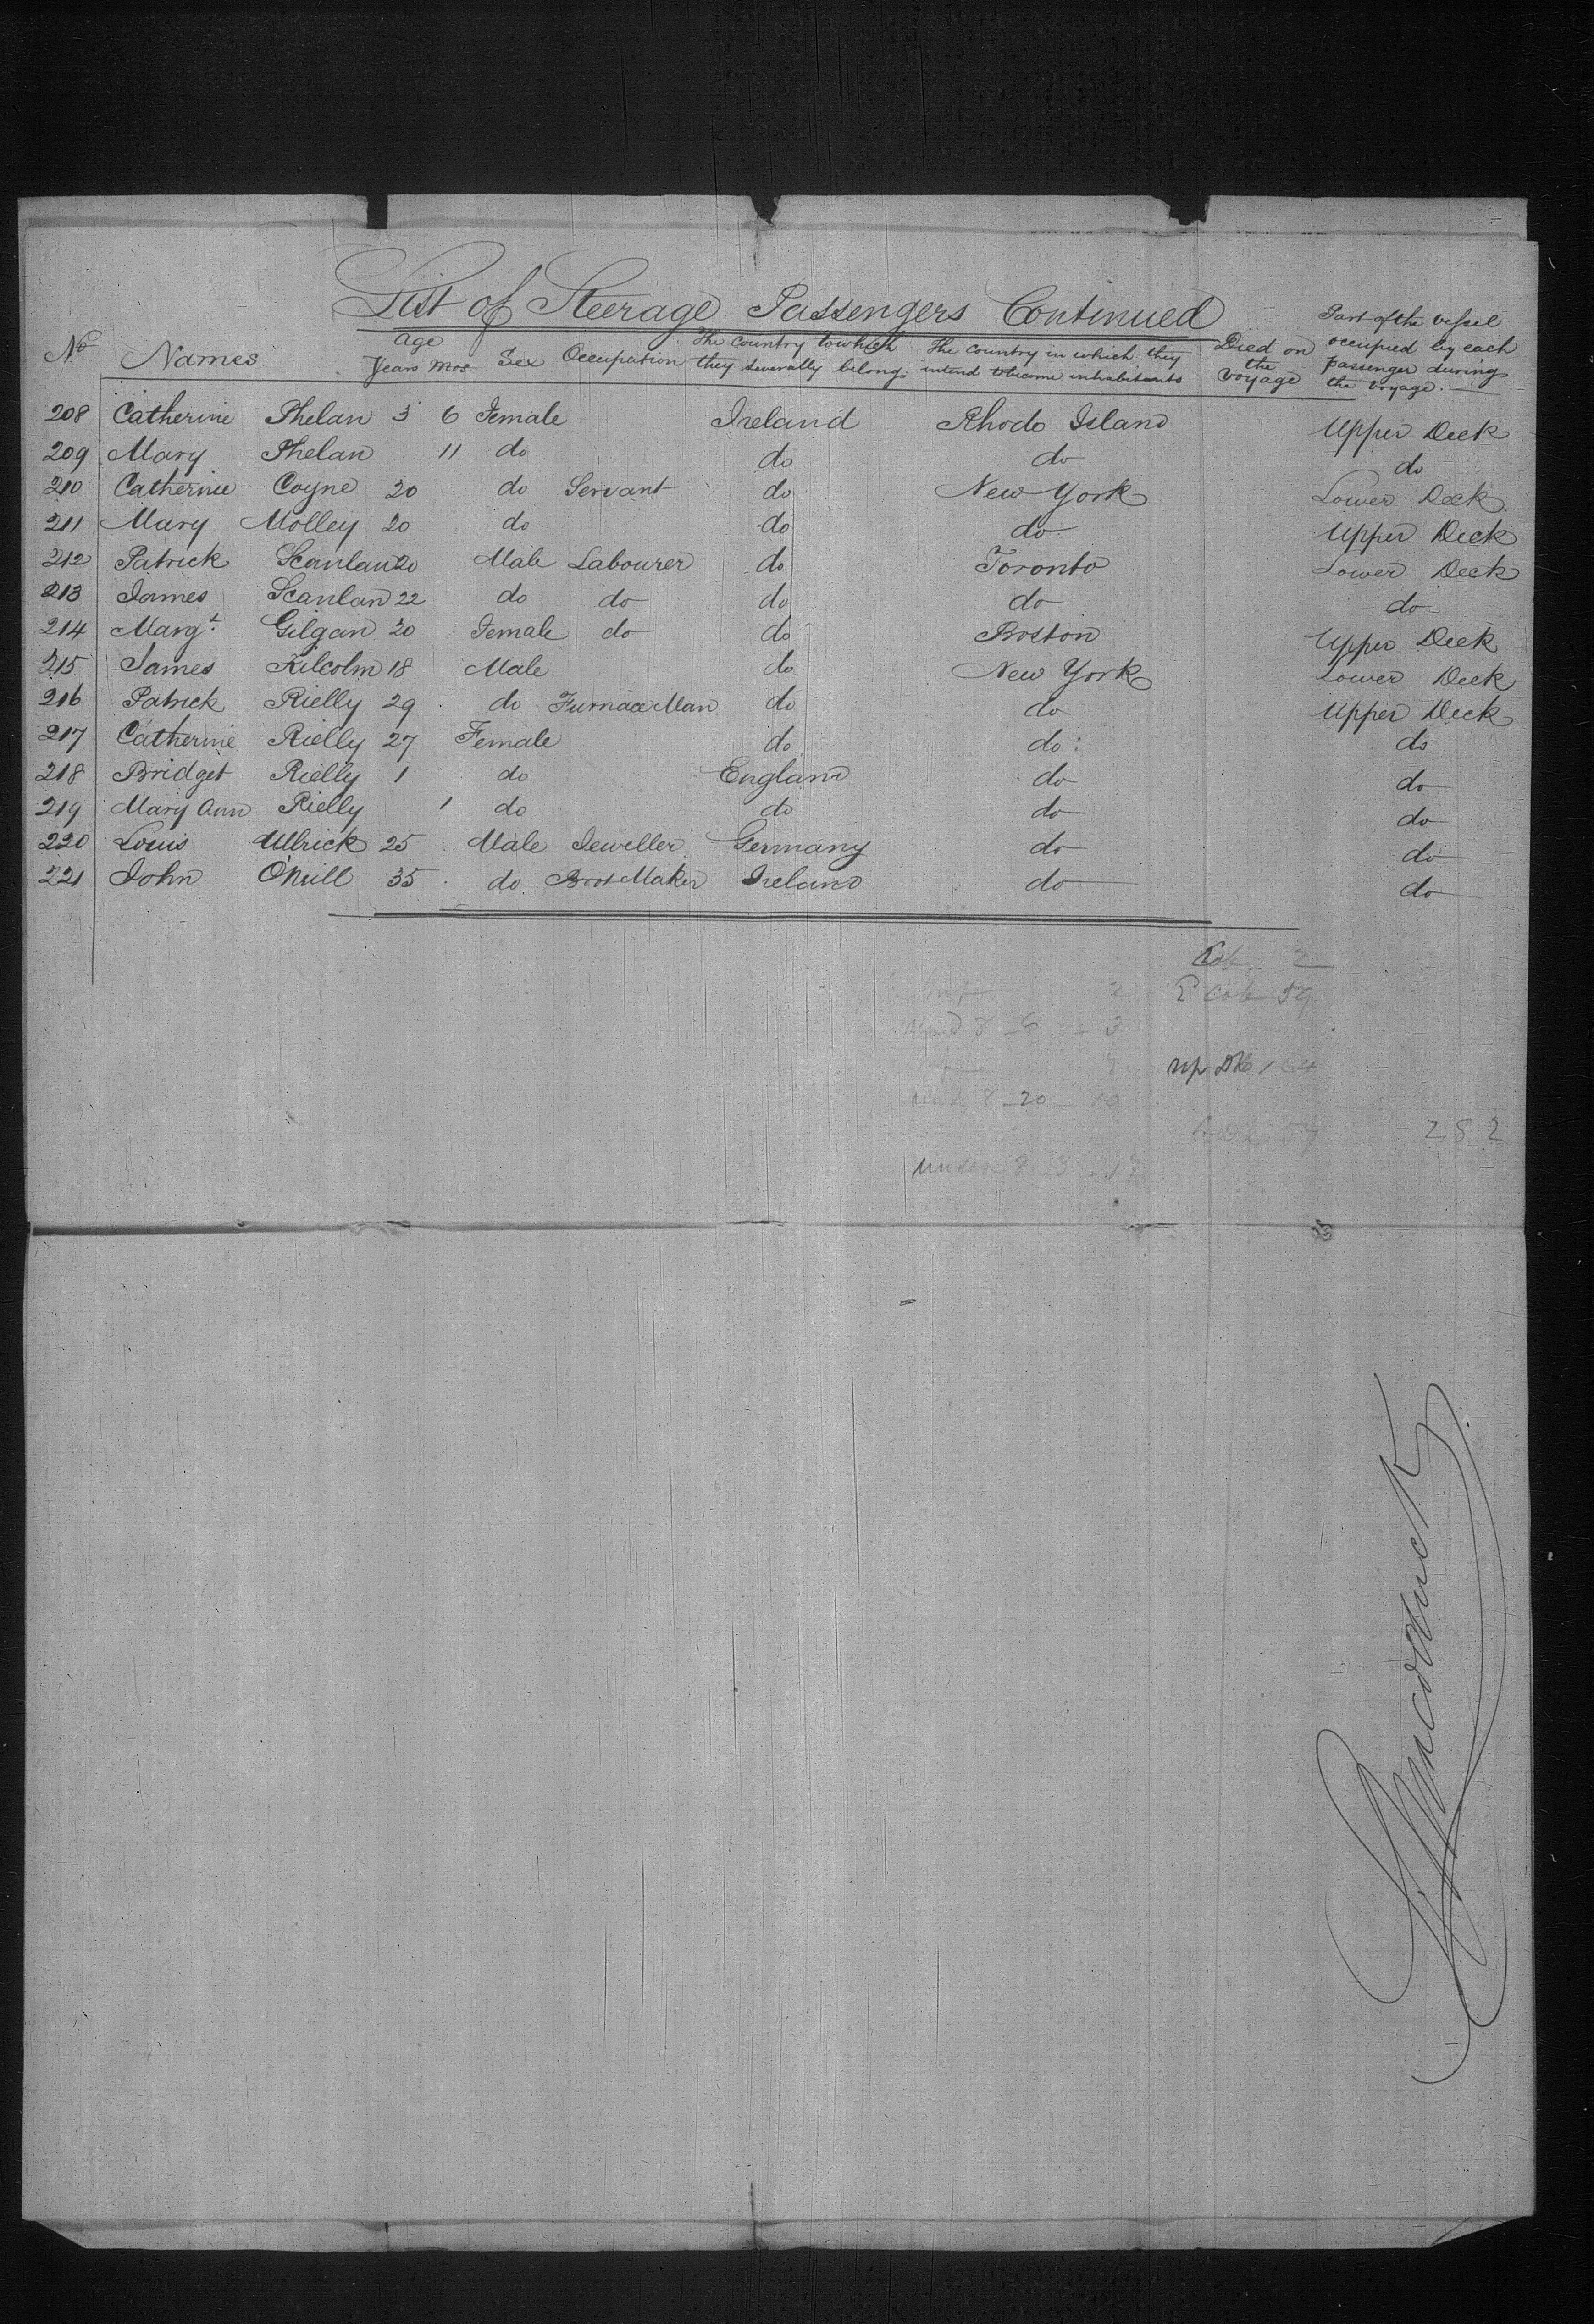 List of Steerage Passengers Continued
No Names Age Years Mos Sex Occupation The Country to which they severally belong The Country in which they intend to become inhabitants Died on the voyage Part of the vessel occupied by each passenger during the voyage.
208 Catherine Phelan 3 6 Female Ireland Rhode Island Upper Deck
209 Mary Phelan 11 do do do do
210 Catherine Coyne 20 do Servant do New York Lower Deck
211 Mary Molley 20 do do do Upper Deck
212 Patrick Scanlan 20 Male Labourer do Toronto Lower Deck
213 James Scanlan 22 do do do do do
214 Margt. Gilgan 20 Female do do Boston Upper Deck
215 James Kilcolm 18 Male do New York Lower Deck
216 Patrick Rielly 29 do Furnace Man do do Upper Deck
217 Catherine Rielly 27 Female do do do
218 Bridget Rielly 1 do England do do
219 Mary Ann Rielly 1 do do do do
220 Louis Ulbrick 25 Male Jeweller Germany do do
221 John O'Neill 35 do Boot Maker Ireland do do
Cab 2
Inf 2 2 Cab 59
3
up Dk 164
8 20 10
57 282
under 8 3 12